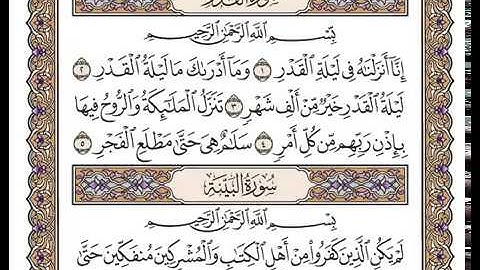 سُورَةُ القَدْرِ
بِسْمِ اللَّهِ الرَّحْمَٰنِ الرَّحِيمِ
إِنَّا أَنزَلْنَٰهُ فِى لَيْلَةِ ٱلْقَدْرِ ١ وَمَآ أَدْرَىٰكَ مَا لَيْلَةُ ٱلْقَدْرِ ٢
لَيْلَةُ ٱلْقَدْرِ خَيْرٌ مِّنْ أَلْفِ شَهْرٍ ٣ تَنَزَّلُ ٱلْمَلَٰٓئِكَةُ وَٱلرُّوحُ فِيهَا
بِإِذْنِ رَبِّهِم مِّن كُلِّ أَمْرٍ ٤ سَلَٰمٌ هِىَ حَتَّىٰ مَطْلَعِ ٱلْفَجْرِ ٥
سُورَةُ البَيِّنَةِ
بِسْمِ اللَّهِ الرَّحْمَٰنِ الرَّحِيمِ
لَمْ يَكُنِ ٱلَّذِينَ كَفَرُوا۟ مِنْ أَهْلِ ٱلْكِتَٰبِ وَٱلْمُشْرِكِينَ مُنفَكِّينَ حَتَّىٰ